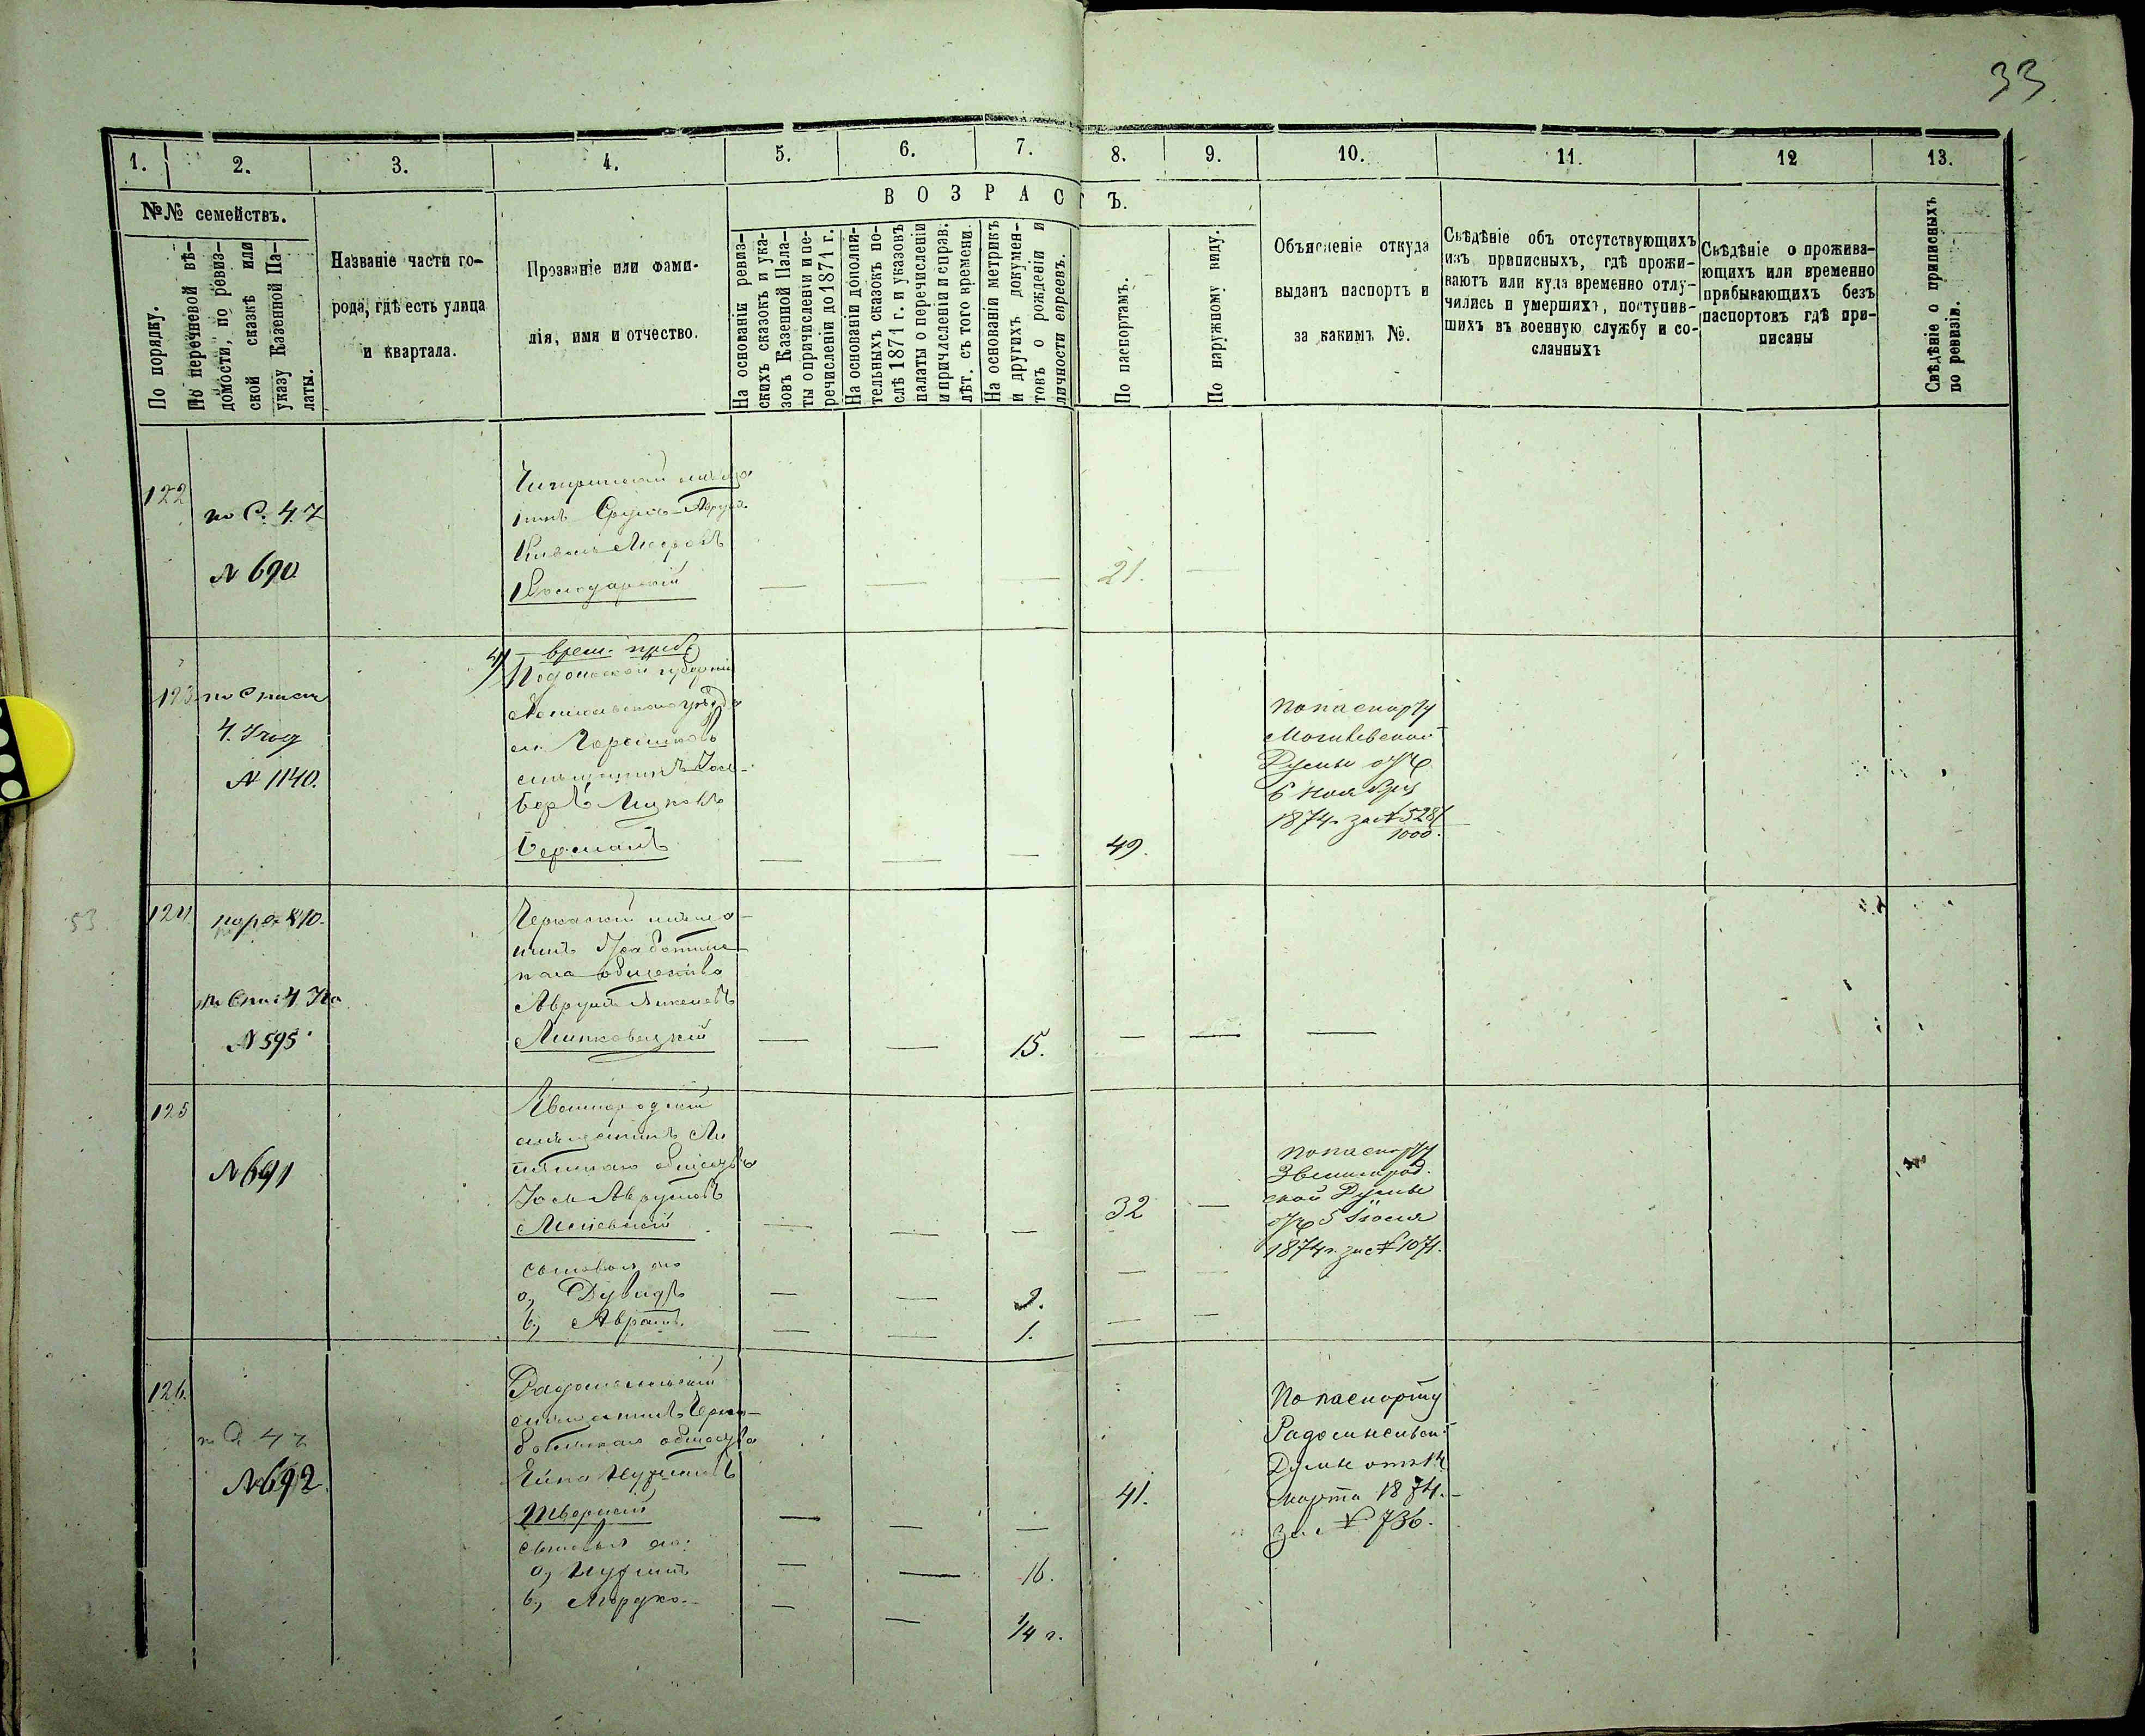 33
1.
2.
3.
4.
5.
6.
7.
8.
9.
10.
11.
12
13.
№№ семействъ.
ВОЗРАСТЪ.
По порядку.
По перечневой вѣ-
домости, по ревиз-
ской сказкѣ или
указу Казенной Па-
латы.
Названіе части го-
рода, гдѣ есть улица
и квартала.
Прозваніе или фами-
лія, имя и отчество.
На основаніи ревиз-
скихъ сказокъ и ука-
зовъ Казенной Пала-
ты о причисленіи и пе-
речисленіи до 1871 г.
На основаніи дополни-
тельныхъ сказокъ по-
слѣ 1871 г. и указовъ
палаты о перечисленіи
и причисленіи и справ:
лѣт. съ того времени.
На основаніи метрикъ
и другихъ докумен-
товъ о рожденіи и
личности евреевъ.
По паспортамъ.
По наружному виду.
Объясненіе откуда
выданъ паспортъ и
за какимъ №.
Свѣдѣніе объ отсутствующихъ
изъ приписныхъ, гдѣ прожи-
ваютъ или куда временно отлу-
чились и умершихъ, поступив-
шихъ въ военную службу и со-
сланныхъ
Свѣдѣніе о прожива-
ющихъ или временно
прибывающихъ безъ
паспортовъ гдѣ при-
писаны
Свѣдѣніе о приписныхъ
по ревизіи.
122
по С. 4.
№ 690
Чигринскій мѣща
нинъ Сруль-Аврум
21.
123
по Списк
4.
№ 1140.
врем. приб.
Подольской губерніи
уѣзда
мѣщанинъ Йось-
Беръ Ицковъ
Берманъ
49.
По паспорту
Могилевской
Думы отъ
6 Ноября
1874 г за № 5281
1000.
53
124
810.
по Спис 4
№ 595
Черкаскій мѣща-
нинъ
каго общества
Аврумъ
Липковецкій
15.
125
№ 691
Звенигородскій
мѣщанинъ
общества
Йось Аврумовъ
32
По паспорту
Звенигород.
ской Думы
отъ 5 Іюля
1874 г. за № 1071.
сыновья его
а, Дувидъ
9.
б, Аврамъ
1.
126.
по С 4
№ 692
Радомысльскій
мѣщанинъ Черно-
быльскаго общества
Тверскій
41.
По паспорту
Радомысльск.
Думы отъ 14
марта 1874.
за № 736.
сыновья его:
а, Нухимъ
16.
б, Мордко
1/4 г.